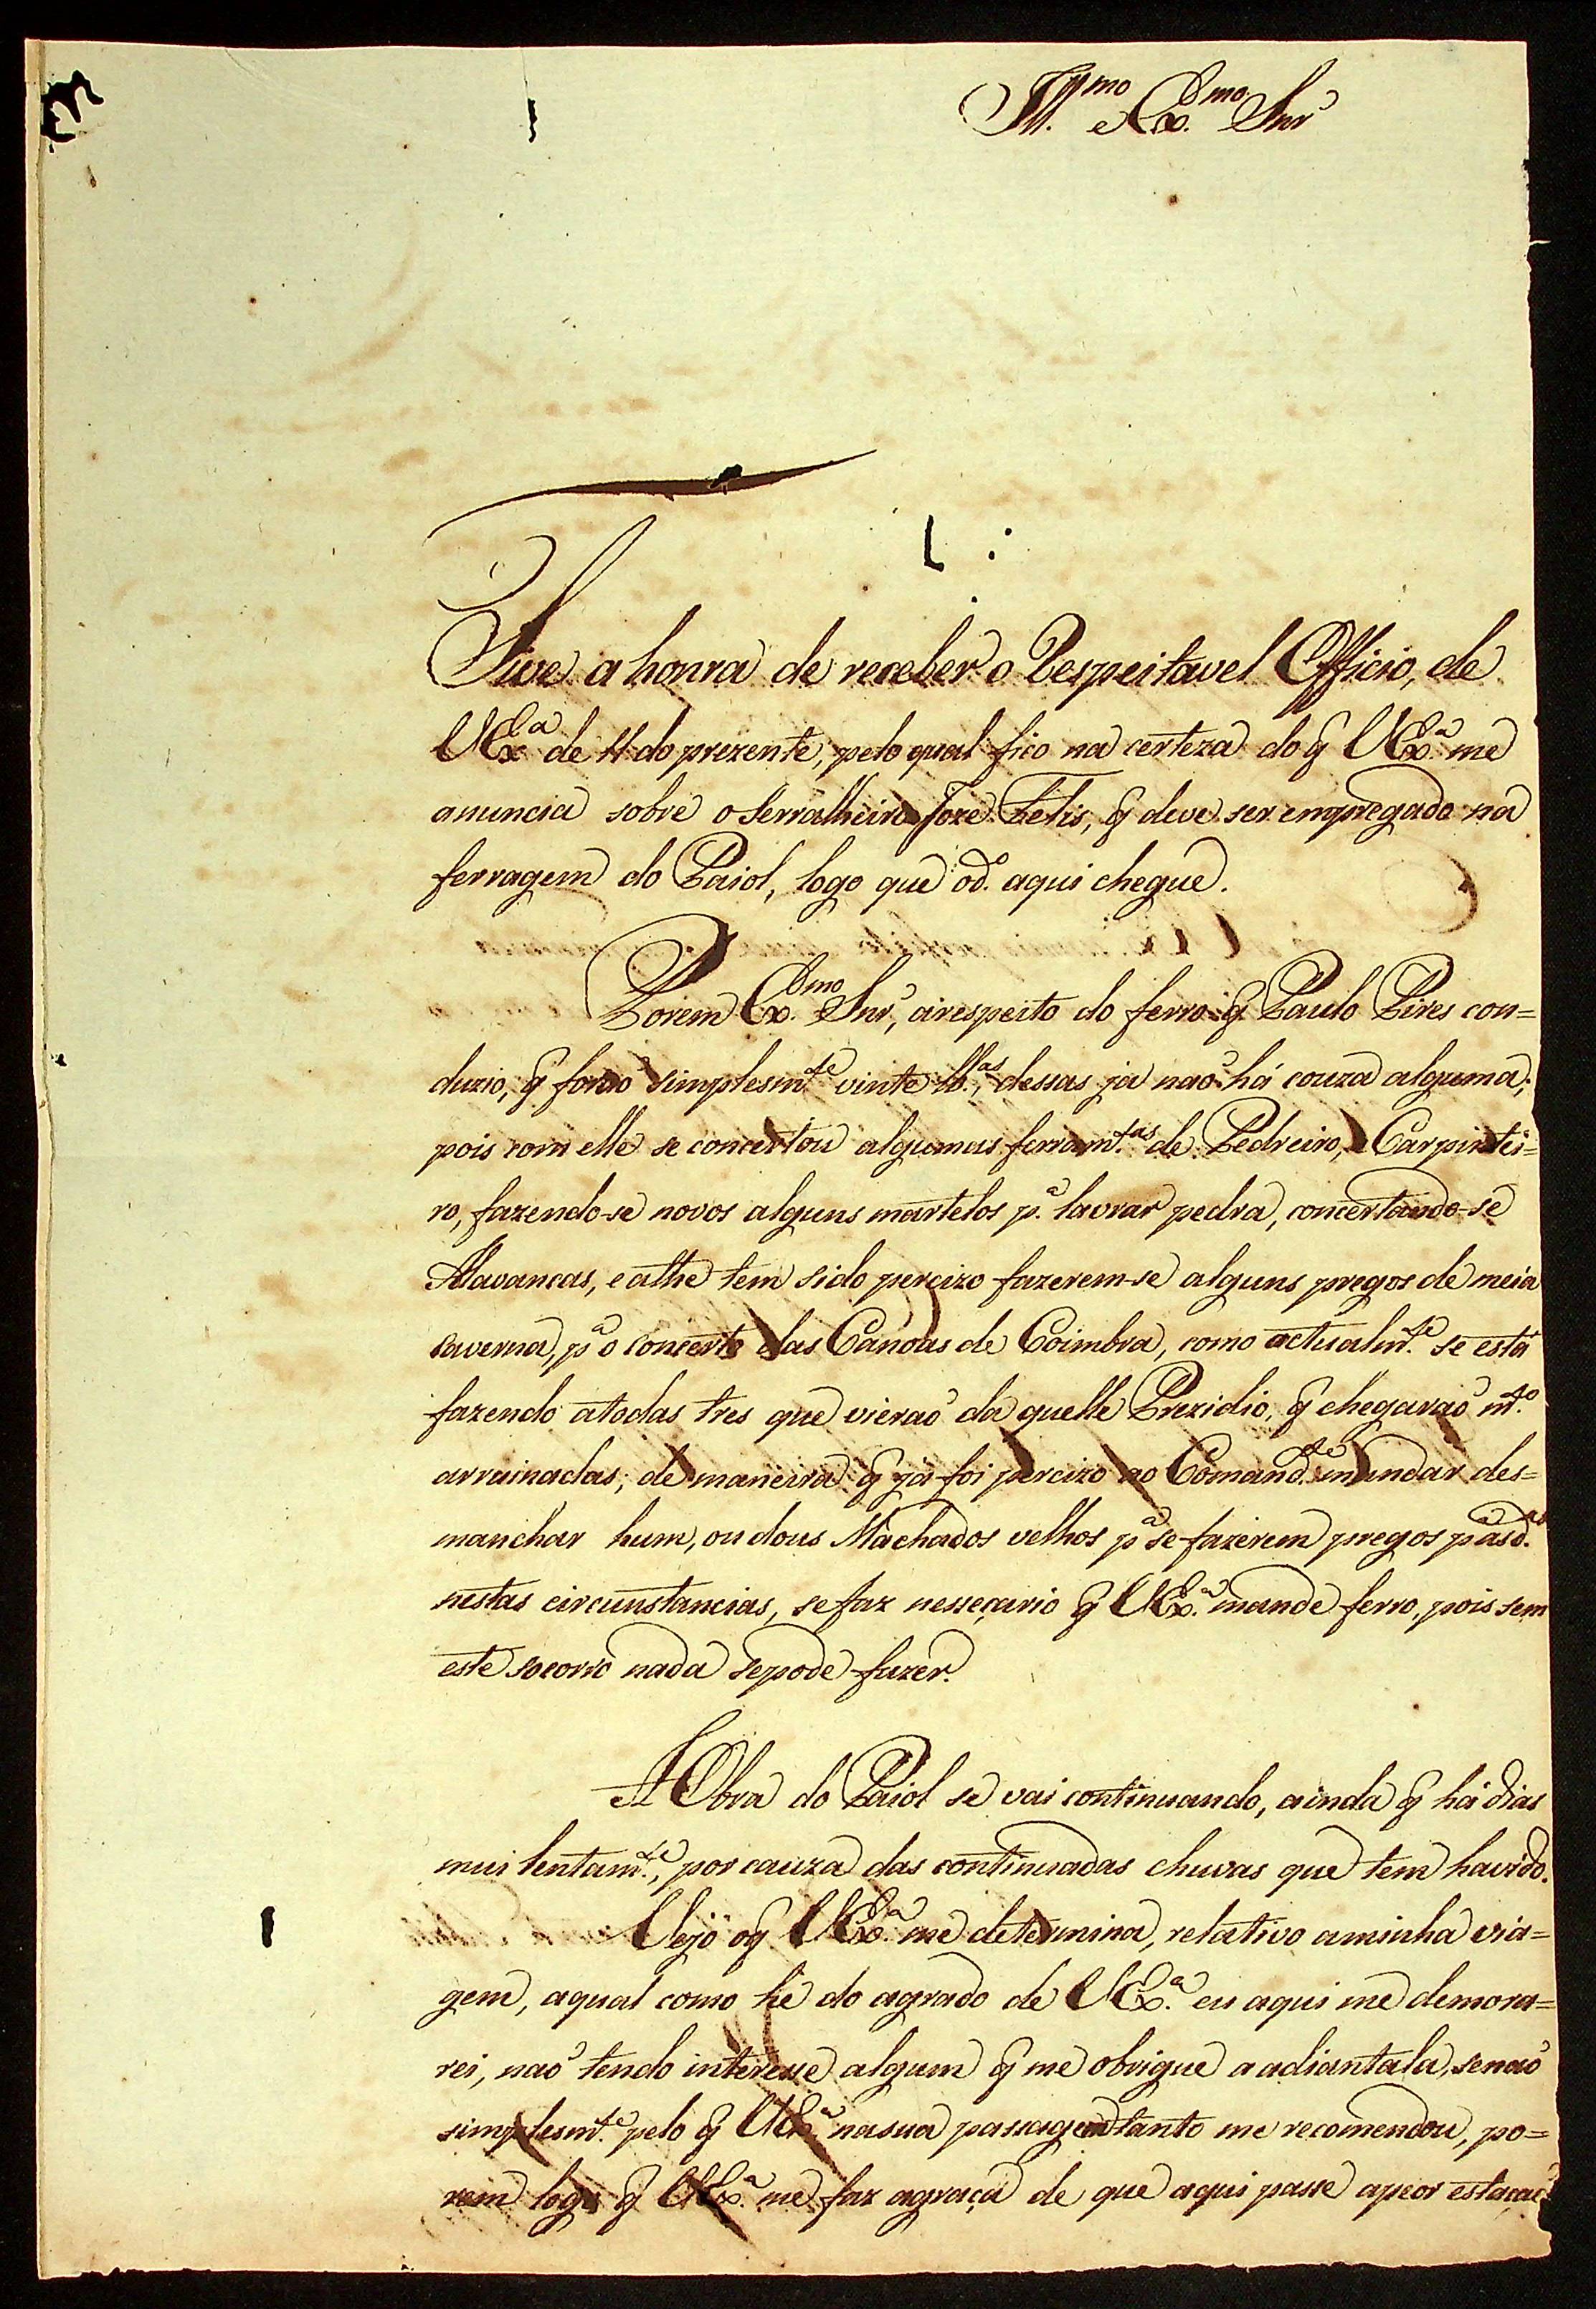 Ill.mo e Ex.mo Snr'
Tive a honra de receber o Respeitavel Officio, de
V Ex.a de 11 do prezente, pelo qual fico na certeza do q̃ V Ex.a me
anuncia sobre o Serralheiro Joze Felis, q̃ deve ser empregado na
ferragem do Paiol, logo que o d.o aqui chegue.
Porem Ex.mo Snr', a respeito do ferro q̃ Paulo Pires con=
duzio, q̃ foraõ simplesm.te vinte lb.as, dessas ja naõ há couza alguma;
pois com elle se concertou algumas ferram.tas de Pedreiro, e Carpintei=
ro, fazendo-se novos alguns martelos p.a lavrar pedra, concertando-se
Alavancas, e athe tem sido percizo fazerem-se alguns pregos de meia
caverna, p.a o concerto das Canoas de Coimbra, como actualm.te se está
fazendo a todas tres que vieraõ da quelle Prezidio, q̃ chegaraõ m.to
arruinadas; de maneira q̃ já foi percizo ao Comand.te mandar des=
manchar hum, ou dous Machados velhos p.a se fazerem pregos p.a as d.as
nestas circunstancias, se faz nesseçario q̃ V Ex.a mande ferro, pois sem
este socorro nada se pode fazer.
A Obra do Paiol se vai continuando, ainda q̃ há dias
mui lentam.te, por cauza das continuadas chuvas que tem havido.
Vejo o q̃ V Ex.a me determina, relativo a minha via=
gem, a qual como hé do agrado de V Ex.a eu aqui me demora=
rei, naõ tendo interesse algum q̃ me obrigue a adiantala, senaõ
simplesm.te pelo q̃ V Ex.a na sua passagem tanto me recomendou, po=
rem logo q̃ V Ex.a me faz a graça de que aqui passe a peor estaçaõ